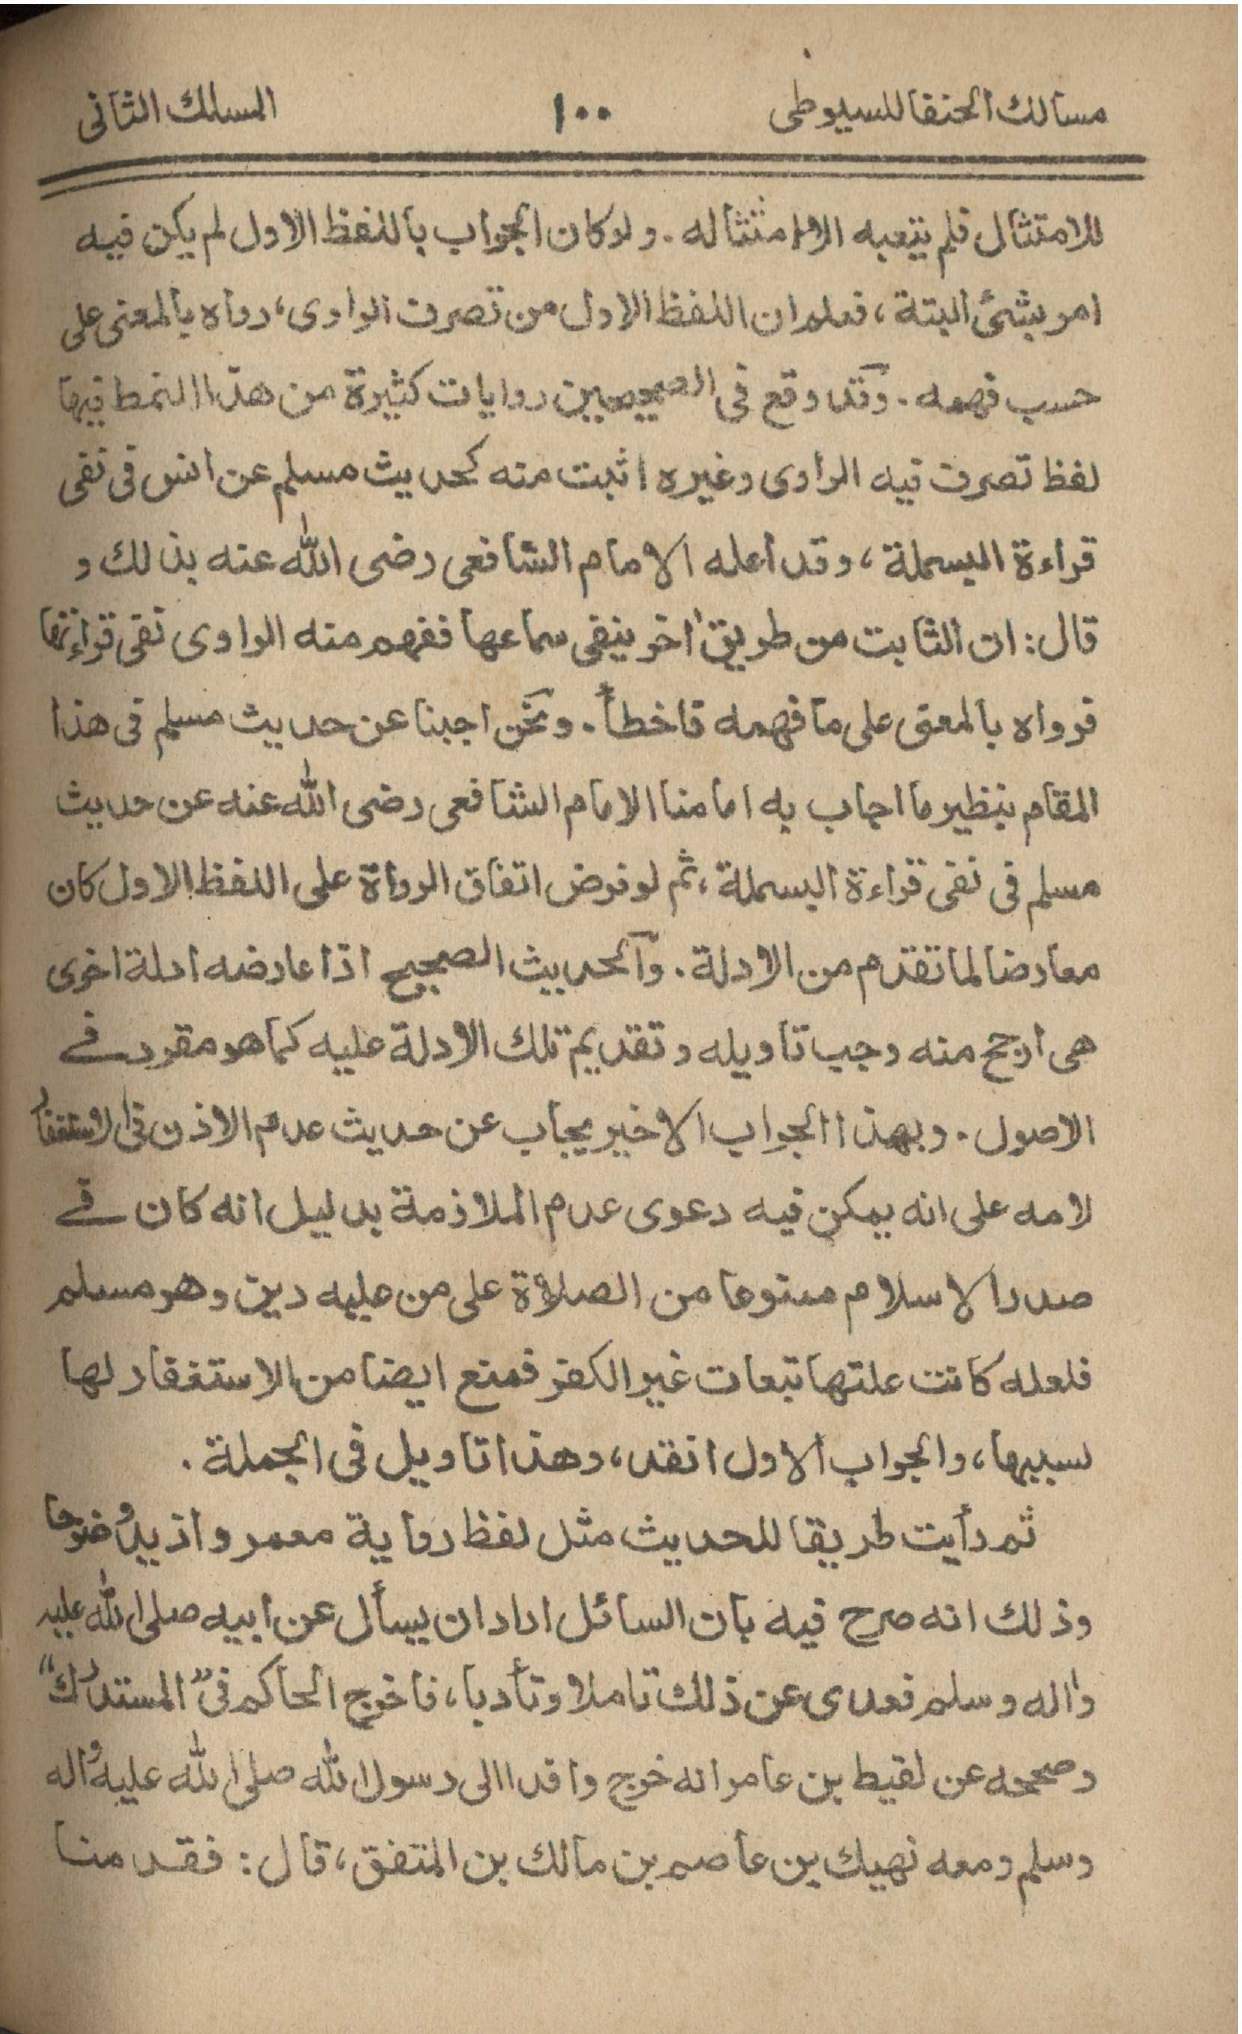 مسالك الحنفا للسيوطى ١٠٠ المسلك الثانى
للامتثال فلم يتعبه الا امتثاله . ولو كان الجواب باللفظ الاول لم يكن فيه
امر بشئ البتة ، فعلم ان اللفظ الاول من تصرف الراوى ، رواه بالمعنى على
حسب فهمه . وقد وقع فى الصحيحين روايات كثيرة من هذا النمط فيها
لفظ تصرف فيه الراوى وغيره اثبت منه كحديث مسلم عن انس فى نفى
قراءة البسملة ، وقد اعله الامام الشافعى رضى الله عنه بذلك و
قال : ان الثابت من طريق اخر ينفى سماعها ففهم منه الراوى نفى قراءتها
فرواه بالمعنى على ما فهمه فاخطأ . ونحن اجبنا عن حديث مسلم فى هذا
المقام بنظير ما اجاب به امامنا الامام الشافعى رضى الله عنه عن حديث
مسلم فى نفى قراءة البسملة ، ثم لو فرض اتفاق الرواة على اللفظ الاول كان
معارضا لما تقدم من الادلة . والحديث الصحيح اذا عارضه ادلة اخرى
هى ارجح منه وجب تاويله وتقديم تلك الادلة عليه كما هو مقرر فے
الاصول . وبهذا الجواب الاخير يجاب عن حديث عدم الاذن فى الاستغفار
لامه على انه يمكن فيه دعوى عدم الملازمة بدليل انه كان فے
صدر الاسلام ممنوعا من الصلاة على من عليه دين وهو مسلم
فلعله كانت علتها تبعات غير الكفر فمنع ايضا من الاستغفار لها
لسببها ، والجواب الاول انقد ، وهذا تاويل فى الجملة .
ثم رأيت طريقا للحديث مثل لفظ رواية معمر وازيد وضوحا
وذلك انه صرح فيه بان السائل اراد ان يسأل عن ابيه صلى الله عليه
واله وسلم فعدى عن ذلك تاملا وتأدبا ، فاخرج الحاكم فى "المستدرك"
وصححه عن لقيط بن عامر انه خرج وافدا الى رسول الله صلى الله عليه واله
وسلم ومعه نهيك بن عاصم بن مالك بن المنتفق ، قال : فقدمنا